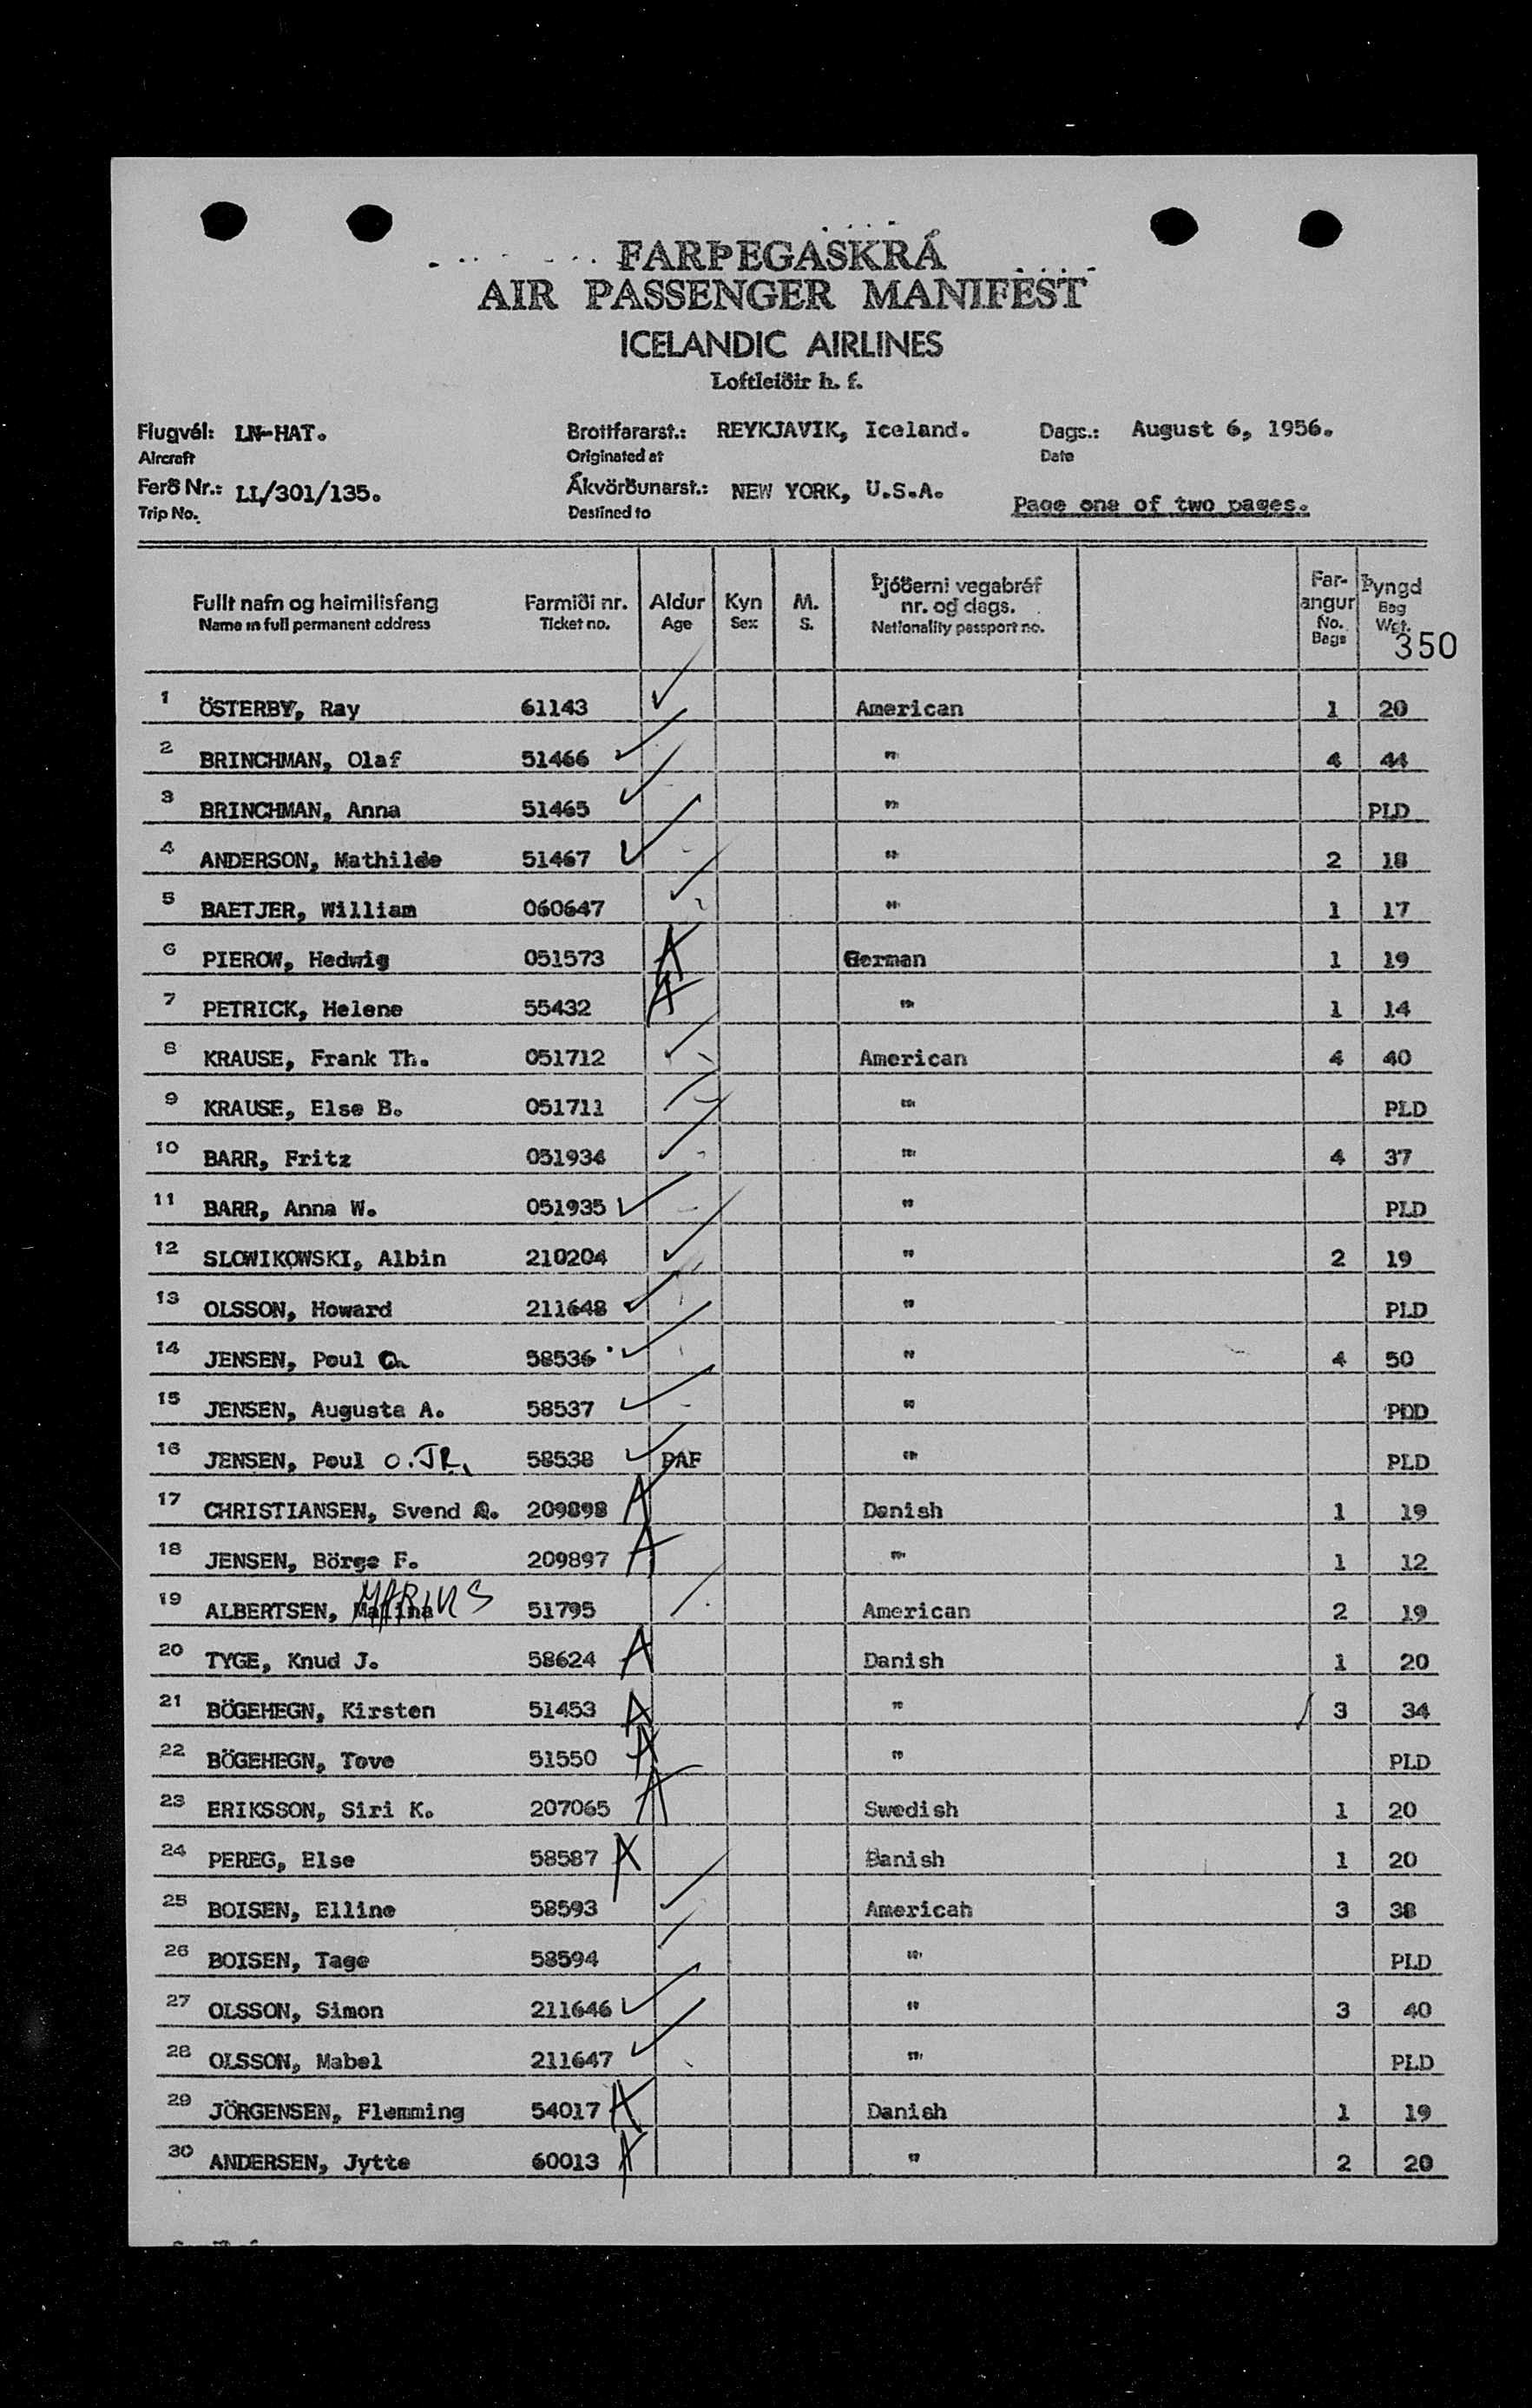 FARÞEGASKRÁ
AIR PASSENGER MANIFEST
ICELANDIC AIRLINES
Loftleiðir h. f.
Flugvél: LN-HAT. Brottfararst.: REYKJAVIK, Iceland. Dags.: August 6, 1956.
Aircraft Originated at Date
Ferð Nr.: LL/301/135. Ákvörðunarst.: NEW YORK, U.S.A. Page one of two pages.
Trip No. Destined to
Fullt nafn og heimilisfang Farmiði nr. Aldur Kyn M. Þjóðerni vegabréf nr. og dags. Farangur Þyngd
Name in full permanent address Ticket no. Age Sex S. Nationality passport no. No. Bags Bag Wgt.
350
1 ÖSTERBY, Ray 61143 American 1 20
2 BRINCHMAN, Olaf 51466 " 4 44
3 BRINCHMAN, Anna 51465 " PLD
4 ANDERSON, Mathilde 51467 " 2 18
5 BAETJER, William 060647 " 1 17
6 PIEROW, Hedwig 051573 A German 1 19
7 PETRICK, Helene 55432 A " 1 14
8 KRAUSE, Frank Th. 051712 American 4 40
9 KRAUSE, Else B. 051711 " PLD
10 BARR, Fritz 051934 " 4 37
11 BARR, Anna W. 051935 " PLD
12 SLOWIKOWSKI, Albin 210204 " 2 19
13 OLSSON, Howard 211648 " PLD
14 JENSEN, Poul 58536 " 4 50
15 JENSEN, Augusta A. 58537 " PDD
16 JENSEN, Poul O. JR. 58538 PAF " PLD
17 CHRISTIANSEN, Svend 209898 A Danish 1 19
18 JENSEN, Börge F. 209897 A " 1 12
19 ALBERTSEN, MARIUS 51795 American 2 19
20 TYGE, Knud J. 58624 A Danish 1 20
21 BÖGEHEGN, Kirsten 51453 A " 3 34
22 BÖGEHEGN, Tove 51550 A " PLD
23 ERIKSSON, Siri K. 207065 A Swedish 1 20
24 PEREG, Else 58587 A Danish 1 20
25 BOISEN, Elline 58593 American 3 38
26 BOISEN, Tage 58594 " PLD
27 OLSSON, Simon 211646 " 3 40
28 OLSSON, Mabel 211647 " PLD
29 JÖRGENSEN, Flemming 54017 A Danish 1 19
30 ANDERSEN, Jytte 60013 A " 2 20